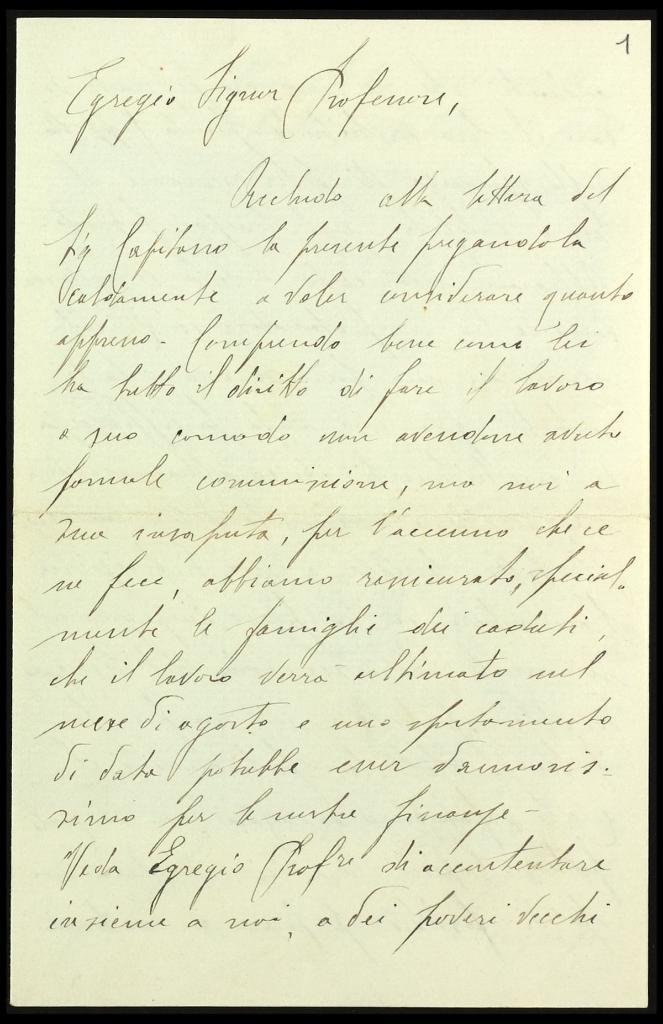 1
Egregio Signor Professore,
Accludo alla lettera del
Sig Capitano la presente pregandola
caldamente a voler considerare quanto
appreso - Comprendo bene come Lei
ha tutto il diritto di fare il lavoro
a suo comodo non avendone avuto
formale commissione, ma noi a
sua insaputa, per l'accenno che ce
ne fece, abbiamo rassicurato, special-
mente le famiglie dei caduti,
che il lavoro verrà ultimato nel
mese di agosto e uno spostamento
di data potrebbe esser dannosis-
simo per le nostre finanze -
Veda Egregio Profre di accontentare
insieme a noi, a dei poveri vecchi